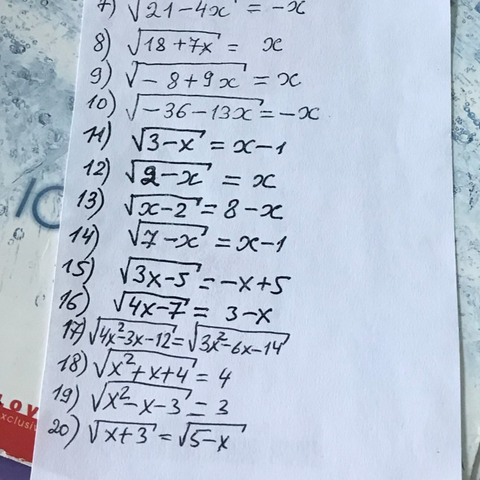 7) √21-4x = -x
8) √18+7x = x
9) √-8+9x = x
10) √-36-13x = -x
11) √3-x = x-1
12) √2-x = x
13) √x-2 = 8-x
14) √7-x = x-1
15) √3x-5 = -x+5
16) √4x-7 = 3-x
17) √4x²-3x-12 = √3x²-6x-14
18) √x²+x+4 = 4
19) √x²-x-3 = 3
20) √x+3 = √5-x